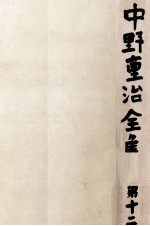 中野重治全集
第十二